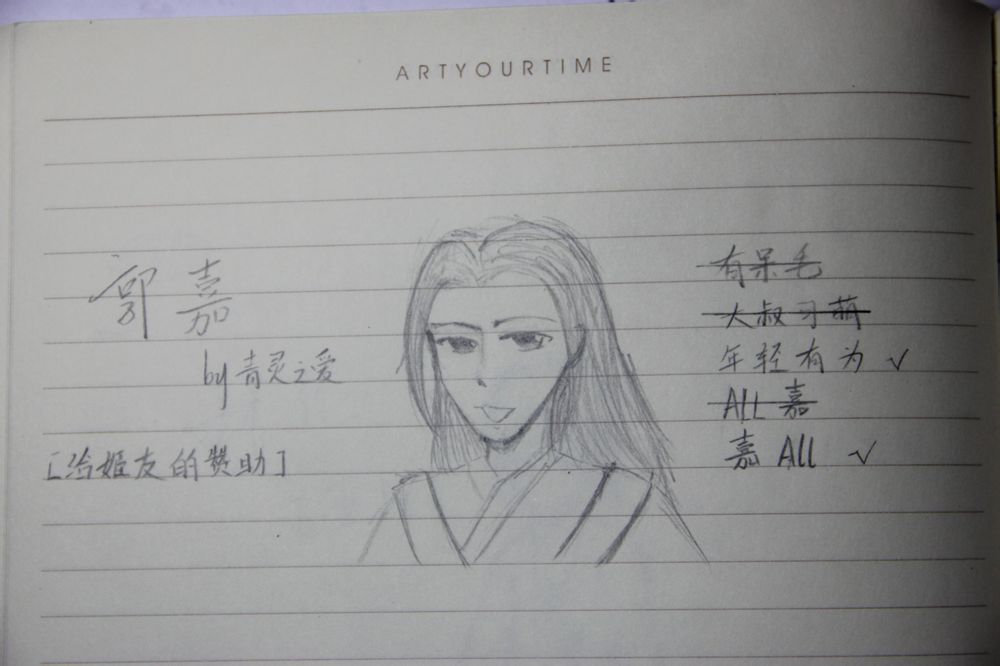 ARTYOURTIME
郭嘉
by 青灵之爱
[给姬友的赞助]
有呆毛
大叔习萌
年轻有为 ✓
All 嘉
嘉 All ✓